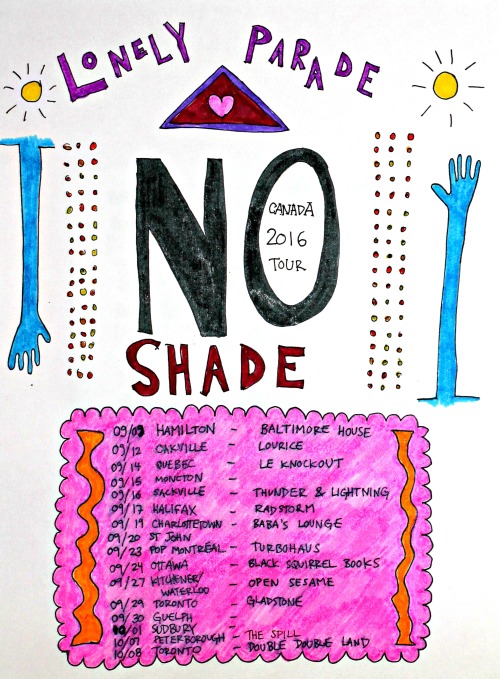 LONELY PARADE
NO
CANADA
2016
TOUR
SHADE
09/09 HAMILTON - BALTIMORE HOUSE
09/12 OAKVILLE - LOURICE
09/14 QUEBEC - LE KNOCKOUT
09/15 MONCTON -
09/16 SACKVILLE - THUNDER & LIGHTNING
09/17 HALIFAX - RADSTORM
09/19 CHARLOTTETOWN - BABA'S LOUNGE
09/20 ST JOHN
09/23 POP MONTRÉAL - TURBOHAUS
09/24 OTTAWA - BLACK SQUIRREL BOOKS
09/27 KITCHENER/ - OPEN SESAME
WATERLOO
09/29 TORONTO - GLADSTONE
09/30 GUELPH -
10/01 SUDBURY
10/07 PETERBOROUGH - THE SPILL
10/08 TORONTO - DOUBLE DOUBLE LAND